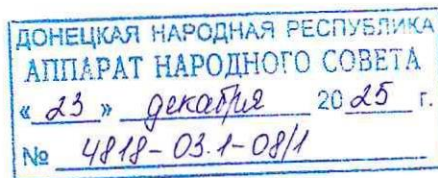 ДОНЕЦКАЯ НАРОДНАЯ РЕСПУБЛИКА
АППАРАТ НАРОДНОГО СОВЕТА
« 23 » декабря 20 25 г.
№ 4818-03.1-08/1